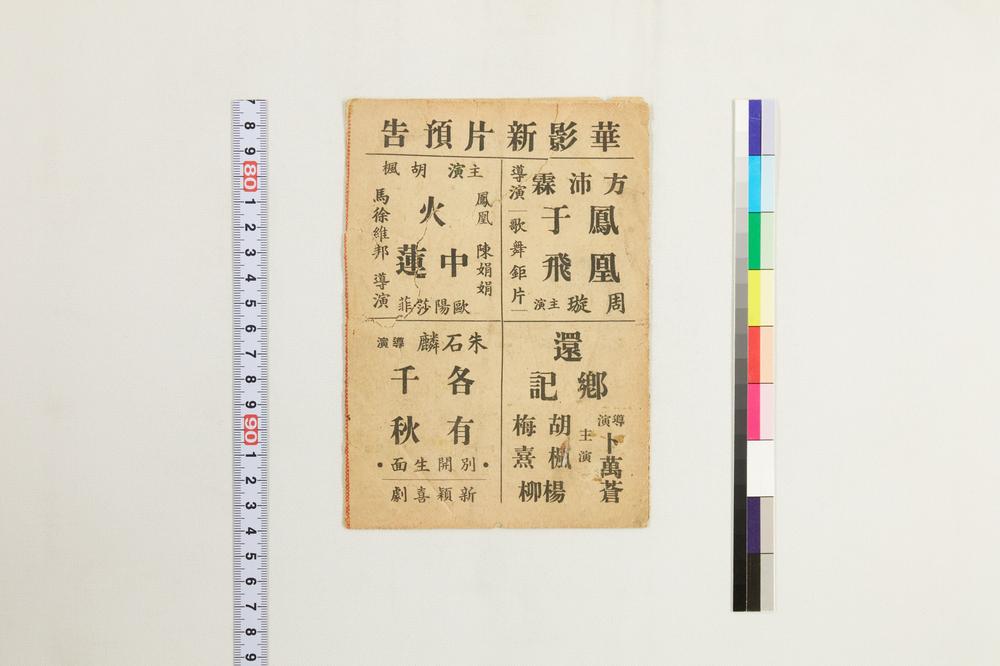 華影新片預告
方沛霖
導演
鳳凰
于飛
歌舞鉅片
周璇
主演
主演 胡楓
鳳凰 陳娟娟
火
中蓮
馬徐維邦 導演
歐陽莎菲
還
鄉記
導演
卜萬蒼
主演
胡楓
梅熹
楊柳
朱石麟
導演
各千
有秋
•別開生面•
新穎喜劇
7 8 9 80 1 2 3 4 5 6 7 8 9 90 1 2 3 4 5 6 7 8 9